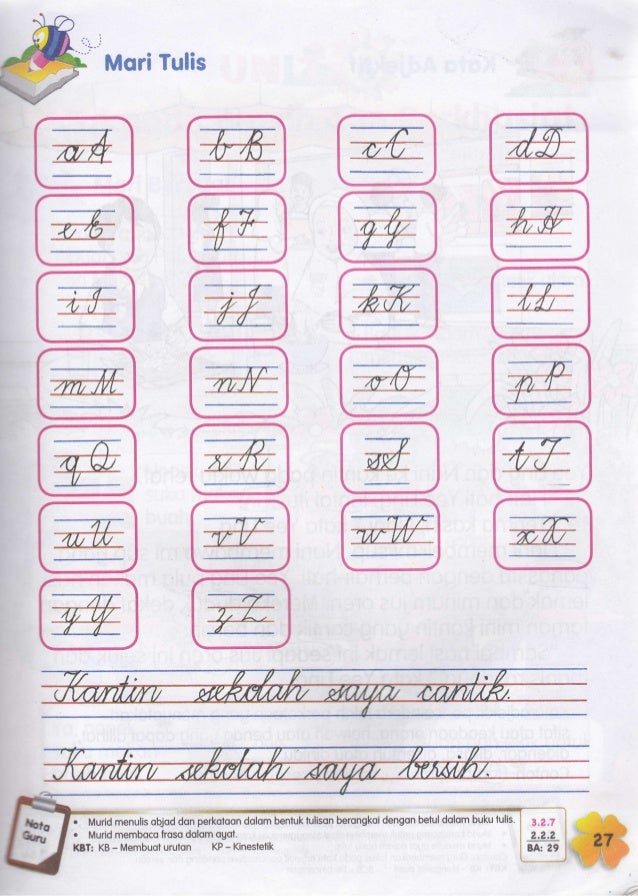 Mari Tulis
aA bB cC dD
eE fF gG hH
iI jJ kK lL
mM nN oO pP
qQ rR sS tT
uU vV wW xX
yY zZ
Kantin sekolah saya cantik.
Kantin sekolah saya bersih.
Nota
Guru
• Murid menulis abjad dan perkataan dalam bentuk tulisan berangkai dengan betul dalam buku tulis.
• Murid membaca frasa dalam ayat.
KBT: KB – Membuat urutan KP – Kinestetik
3.2.7
2.2.2
BA: 29
27